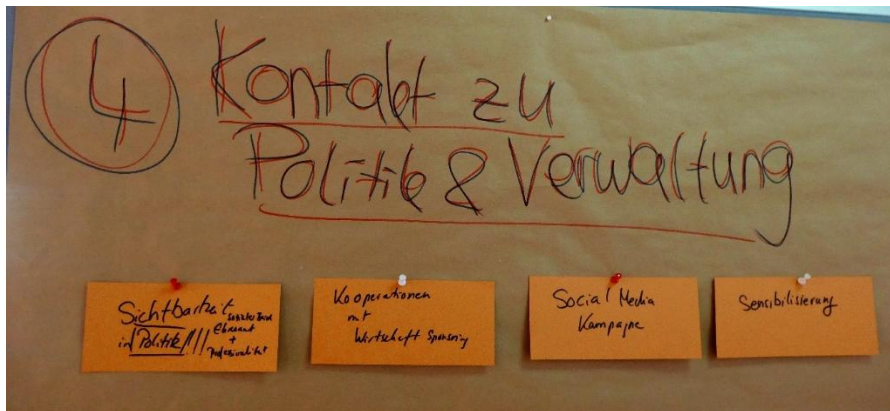 4
Kontakt zu
Politik & Verwaltung
Sichtbarkeit
in Politik
Ehrenamt
+
Professionalität
Kooperationen
mit
Wirtschaft Sponsoring
Social Media
Kampagne
Sensibilisierung